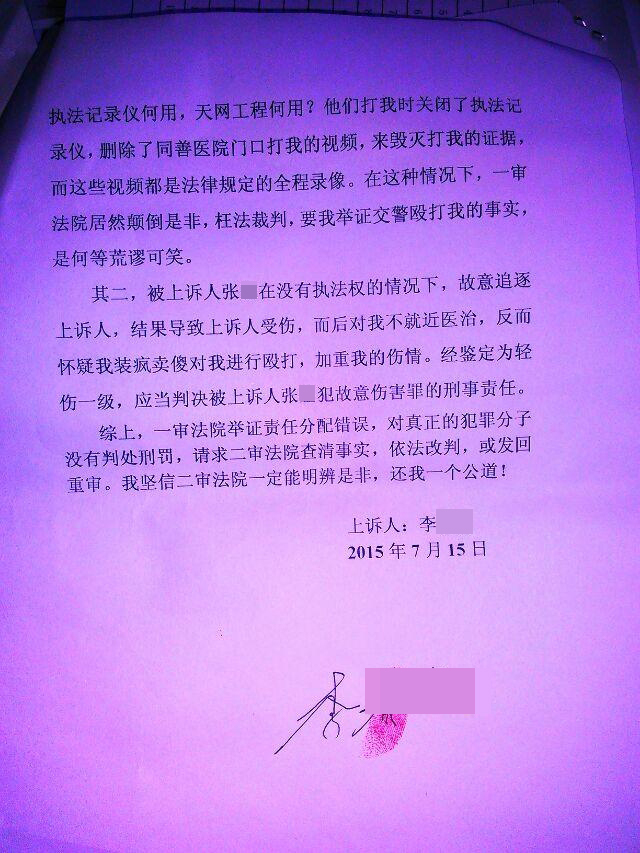 执法记录仪何用，天网工程何用？他们打我时关闭了执法记
录仪，删除了同善医院门口打我的视频，来毁灭打我的证据，
而这些视频都是法律规定的全程录像。在这种情况下，一审
法院居然颠倒是非，枉法裁判，要我举证交警殴打我的事实，
是何等荒谬可笑。
其二，被上诉人张在没有执法权的情况下，故意追逐
上诉人，结果导致上诉人受伤，而后对我不就近医治，反而
怀疑我装疯卖傻对我进行殴打，加重我的伤情。经鉴定为轻
伤一级，应当判决被上诉人张犯故意伤害罪的刑事责任。
综上，一审法院举证责任分配错误，对真正的犯罪分子
没有判处刑罚，请求二审法院查清事实，依法改判，或发回
重审。我坚信二审法院一定能明辨是非，还我一个公道！
上诉人：李
2015年7月15日
李